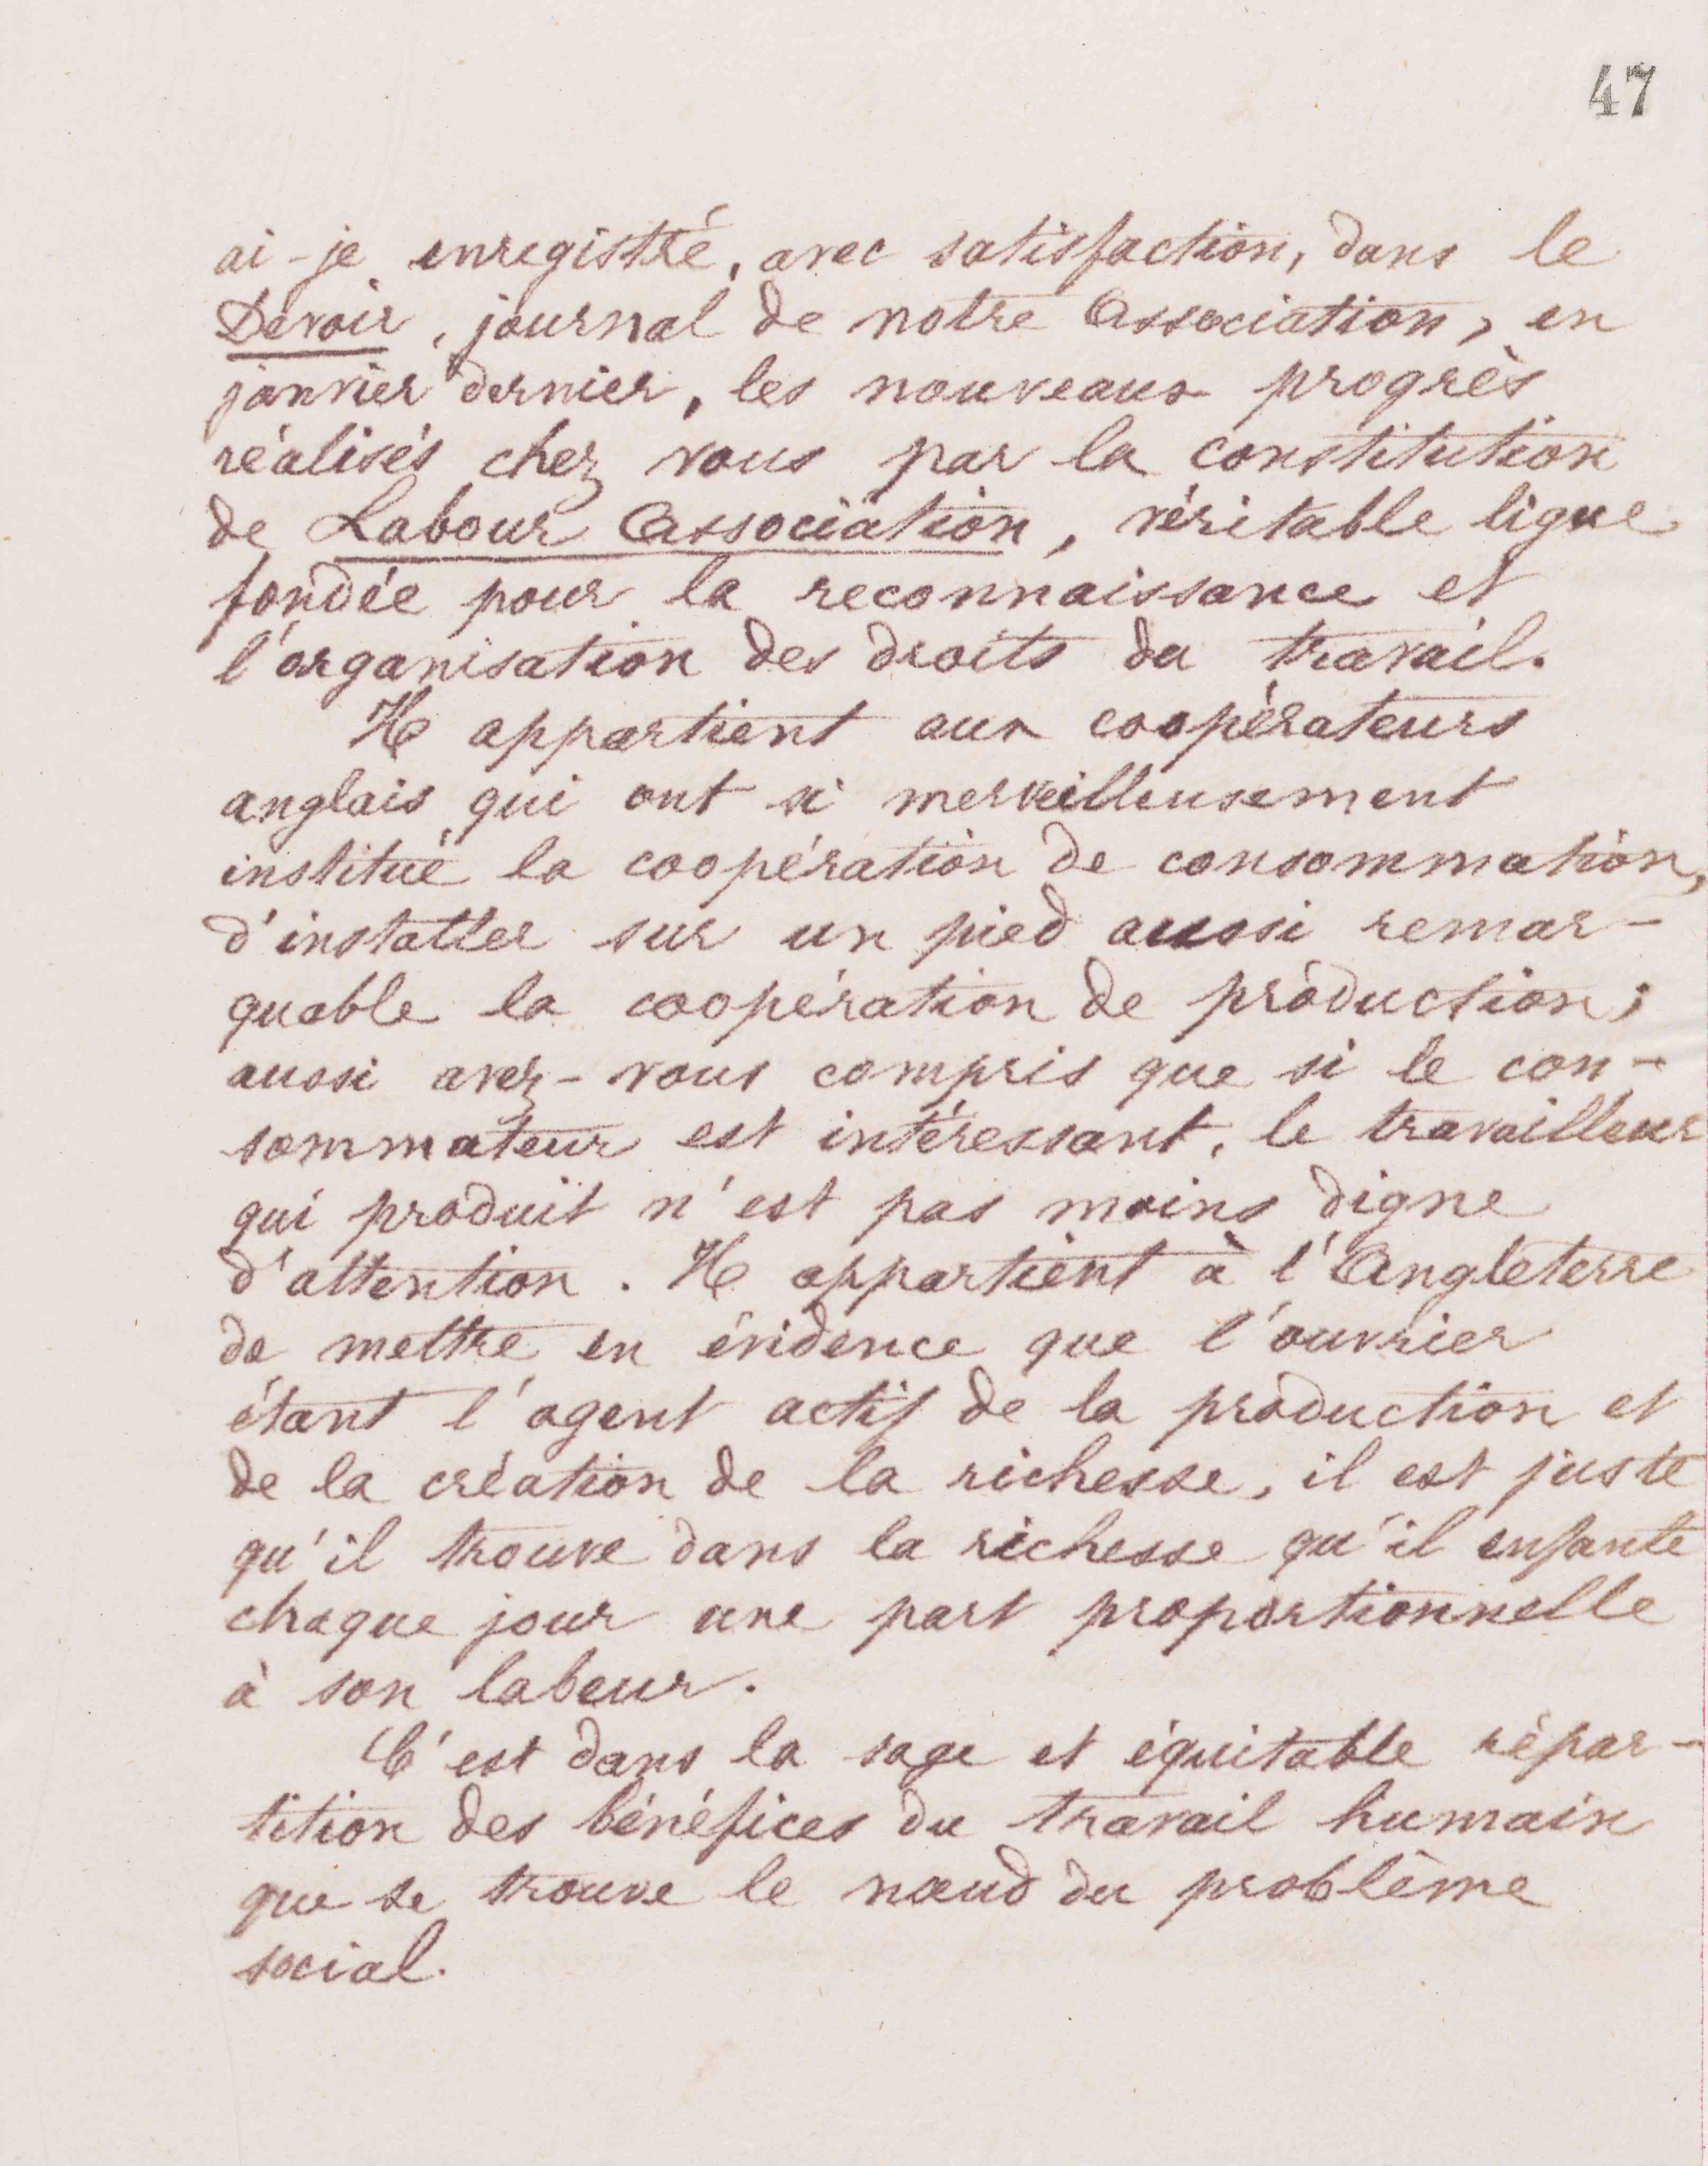 47
ai-je enregistré, avec satisfaction, dans le
Devoir, journal de notre Association, en
janvier dernier, les nouveaux progrès
réalisés chez vous par la constitution
de Labour Association, véritable ligue
fondée pour la reconnaissance et
l'organisation des droits du travail.
Il appartient aux coopérateurs
anglais qui ont si merveilleusement
institué la coopération de consommation,
d'installer sur un pied aussi remar-
quable la coopération de production;
aussi avez-vous compris que si le con-
sommateur est intéressant, le travailleur
qui produit n'est pas moins digne
d'attention. Il appartient à l'Angleterre
de mettre en évidence que l'ouvrier
étant l'agent actif de la production et
de la création de la richesse, il est juste
qu'il trouve dans la richesse qu'il enfante
chaque jour une part proportionnelle
à son labeur.
C'est dans la sage et équitable répar-
tition des bénéfices du travail humain
que se trouve le nœud du problème
social.